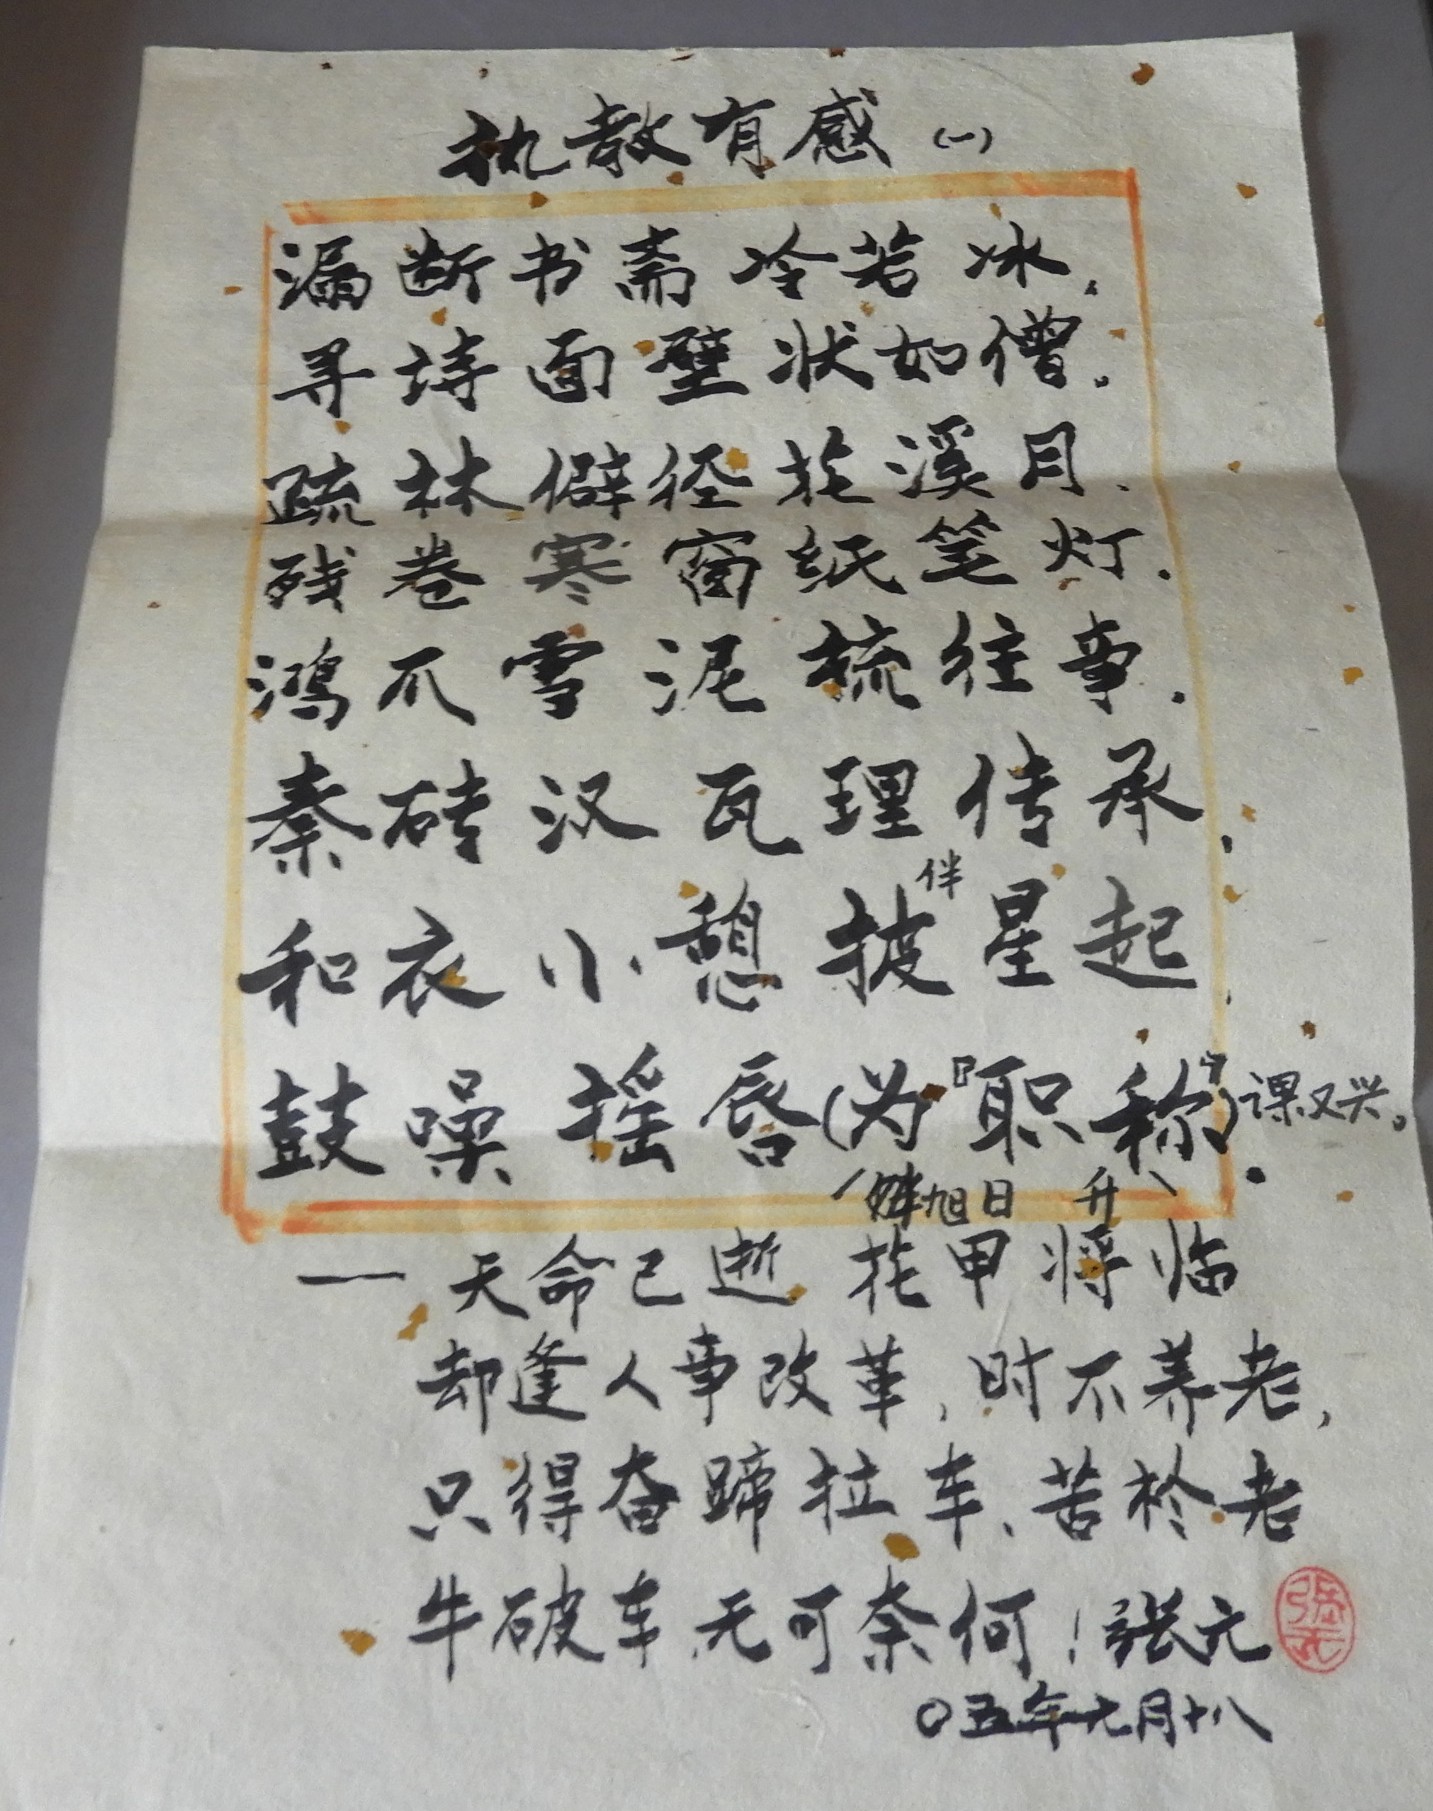 执教有感(一)
漏断书斋冷若冰，
寻诗面壁状如僧。
疏林僻径花溪月、
残卷寒窗纸笔灯.
鸿爪雪泥梳往事.
秦砖汉瓦理传承，
伴
和衣小憩披星起，
鼓噪摇唇(为『职称』)课又兴。
旭日升
一天命已逝 花甲将临
却逢人事改革，时不养老，
只得奋蹄拉车、苦于老
牛破车，无可奈何！张元
〇五年九月十八
张元